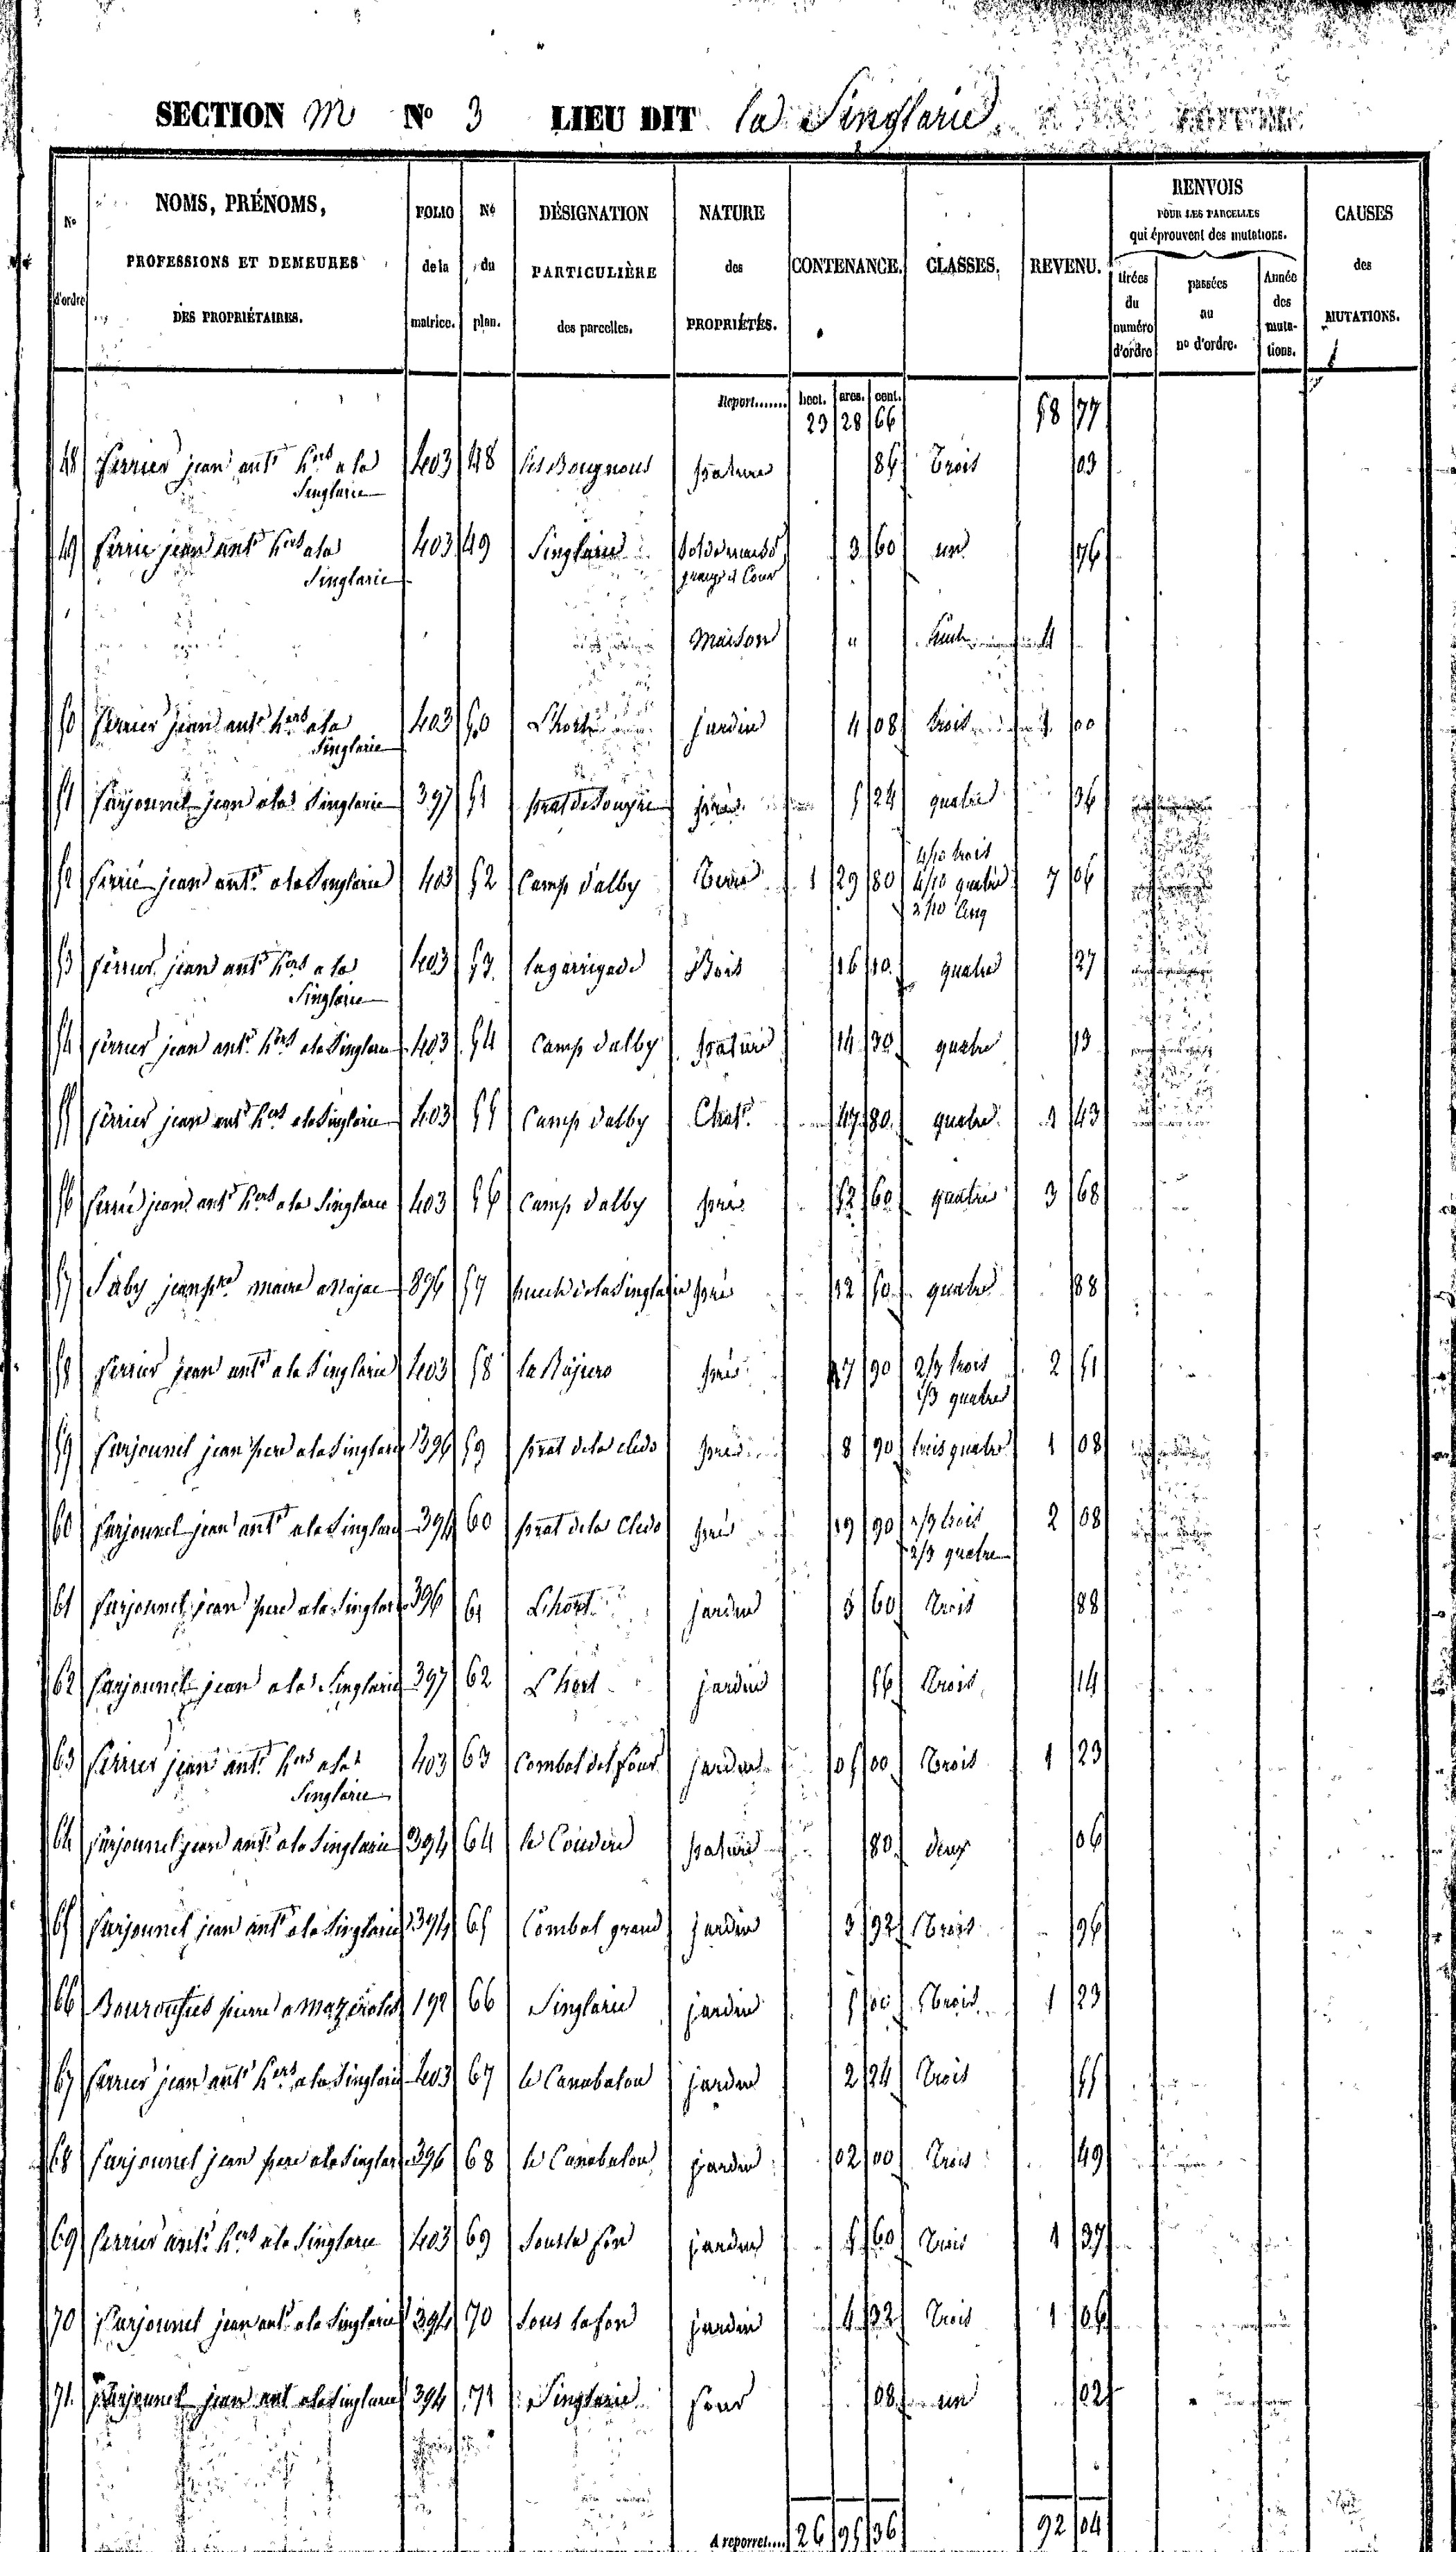 SECTION m N° 3 LIEU DIT la Singlarie
N° d'ordre
NOMS, PRÉNOMS, PROFESSIONS ET DEMEURES DES PROPRIÉTAIRES.
FOLIO de la matrice.
N° du plan.
DÉSIGNATION PARTICULIÈRE des parcelles.
NATURE des PROPRIÉTÉS.
CONTENANCE.
CLASSES.
REVENU.
RENVOIS POUR LES PARCELLES qui éprouvent des mutations.
tirées du numéro d'ordre
passées au n° d'ordre.
Année des mutations.
CAUSES des MUTATIONS.
Report...... hect. ares. cent.
23 28 66 58 77
48 ferrier jean ant.e h.ers a la Singlarie 403 48 les Bougnous pature 84 trois 03
49 ferrie jean ant.e h.ers a la Singlarie 403 49 Singlarie Sol de maison grange et Cour 3 60 un 76
Maison "
50 ferrier jean ant.e h.ers a la Singlarie 403 50 L'hort jardin 4 08 trois 00
51 farjounel jean a la Singlarie 397 51 prat de pré 5 24 quatre 36
52 ferrié jean ant.e a la Singlarie 403 52 Camp d'alby Terre 1 29 80 4/10 trois 4/10 quatre 2/10 Cinq 7 06
53 ferrier jean ant.e h.ers a la Singlarie 403 53 lagarrigade Bois 16 10 quatre 27
54 ferrier jean ant.e h.ers a la Singlarie 403 54 Camp d'alby pature 14 30 quatre 13
55 ferrier jean ant.e h.ers a la Singlarie 403 55 Camp d'alby Chat.e 47 80 quatre 1 43
56 ferrié jean ant.e h.ers a la Singlarie 403 56 Camp d'alby pré 52 60 quatre 3 68
57 Saby jean p.re maire a Najac 896 57 de la Singlarie pré 12 50 quatre 88
58 ferrier jean ant.e a la Singlarie 403 58 la pré 27 90 2/3 trois 1/3 quatre 2 51
59 farjounel jean pere a la Singlarie 396 59 prat de la cledo pré 8 90 trois quatre 1 08
60 farjounel jean ant.e a la Singlarie 394 60 prat de la Cledo pré 19 90 1/3 trois 2/3 quatre 2 08
61 farjounel jean pere a la Singlarie 396 61 L'hort jardin 3 60 trois 88
62 farjounel jean a la Singlarie 397 62 L'hort jardin 56 trois 14
63 ferrier jean ant.e h.ers a la Singlarie 403 63 Combal del four jardin 05 00 trois 1 23
64 farjounel jean ant.e a la Singlarie 394 64 le Couderc pature 80 deux 06
65 farjounel jean ant.e a la Singlarie 394 65 Combal grand jardin 3 92 trois 96
66 pierre a Mazerolles 192 66 Singlarie jardin 5 00 trois 1 23
67 ferrier jean ant.e h.ers a la Singlarie 403 67 le Canabalou jardin 2 24 trois 55
68 farjounel jean pere a la Singlarie 396 68 le Canabalou jardin 02 00 trois 49
69 ferrier ant.e h.ers a la Singlarie 403 69 Sous la fon jardin 5 60 trois 1 37
70 farjounel jean ant. a la Singlarie 394 70 Sous la fon jardin 4 32 trois 1 06
71 farjounel jean ant a la Singlarie 394 71 Singlarie four 08 un 02
A reporter.... 26 95 36 92 04